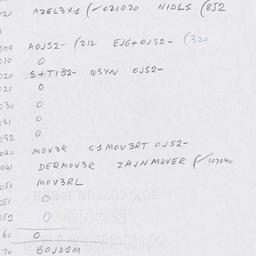 020 AZEL3X1 (✓021020 NIDLS (852
009 AOJS2- (212 EJG+OJS2- (320
010 0
020 S+TIB2- QSYN OJS2-
021 0
030 0
031 0
032 0
040 MOV3R G1MOV3RT OJS2-
041 DERMOV3R ZAJNMOVER (✓107040
050 MOV3RL
051 0
052 0
60 0
70 BOJDSM